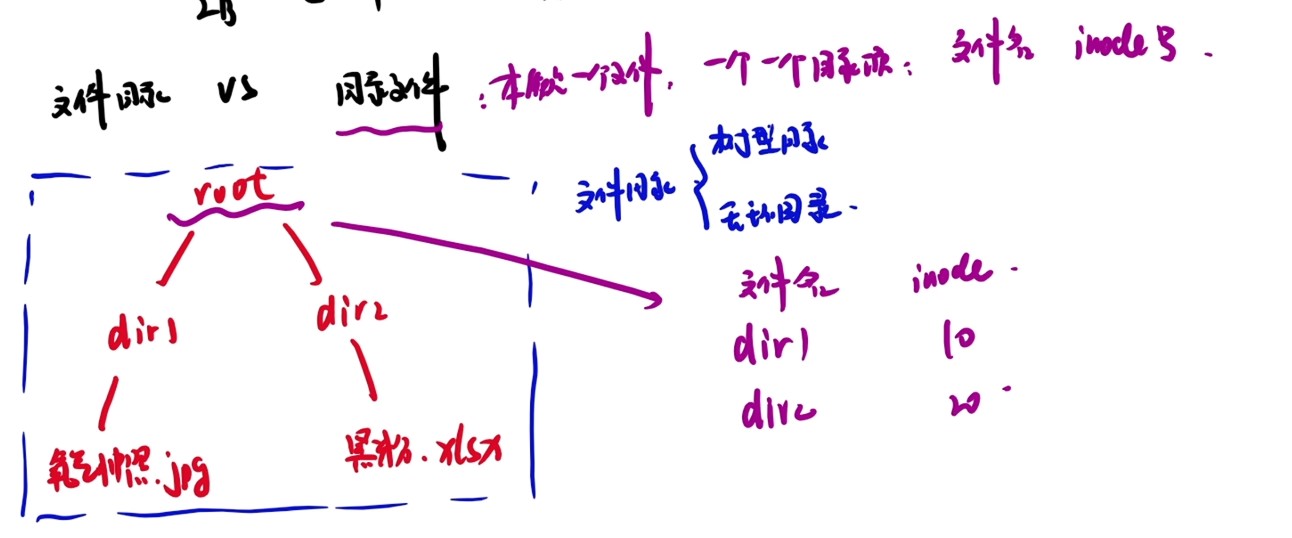 文件目录 vs 目录文件：本质一个文件，一个一个目录项：文件名 inode号.
文件目录 { 树型目录
无环图目录.
root
dir1 dir2
.jpg 黑粉.xlsx
文件名 inode.
dir1 10
dir2 20